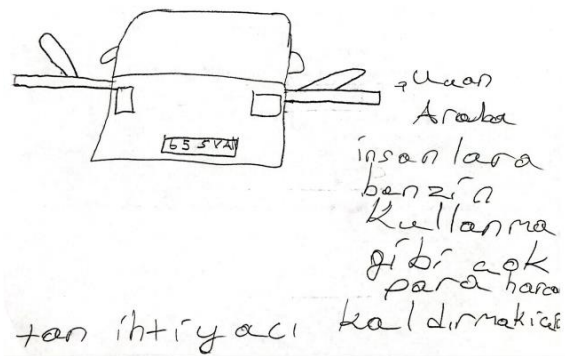 65 SVA
Uçan
Araba
insanlara
benzin
Kullanma
gibi çok
para harca
tan ihtiyacı kaldırmak için